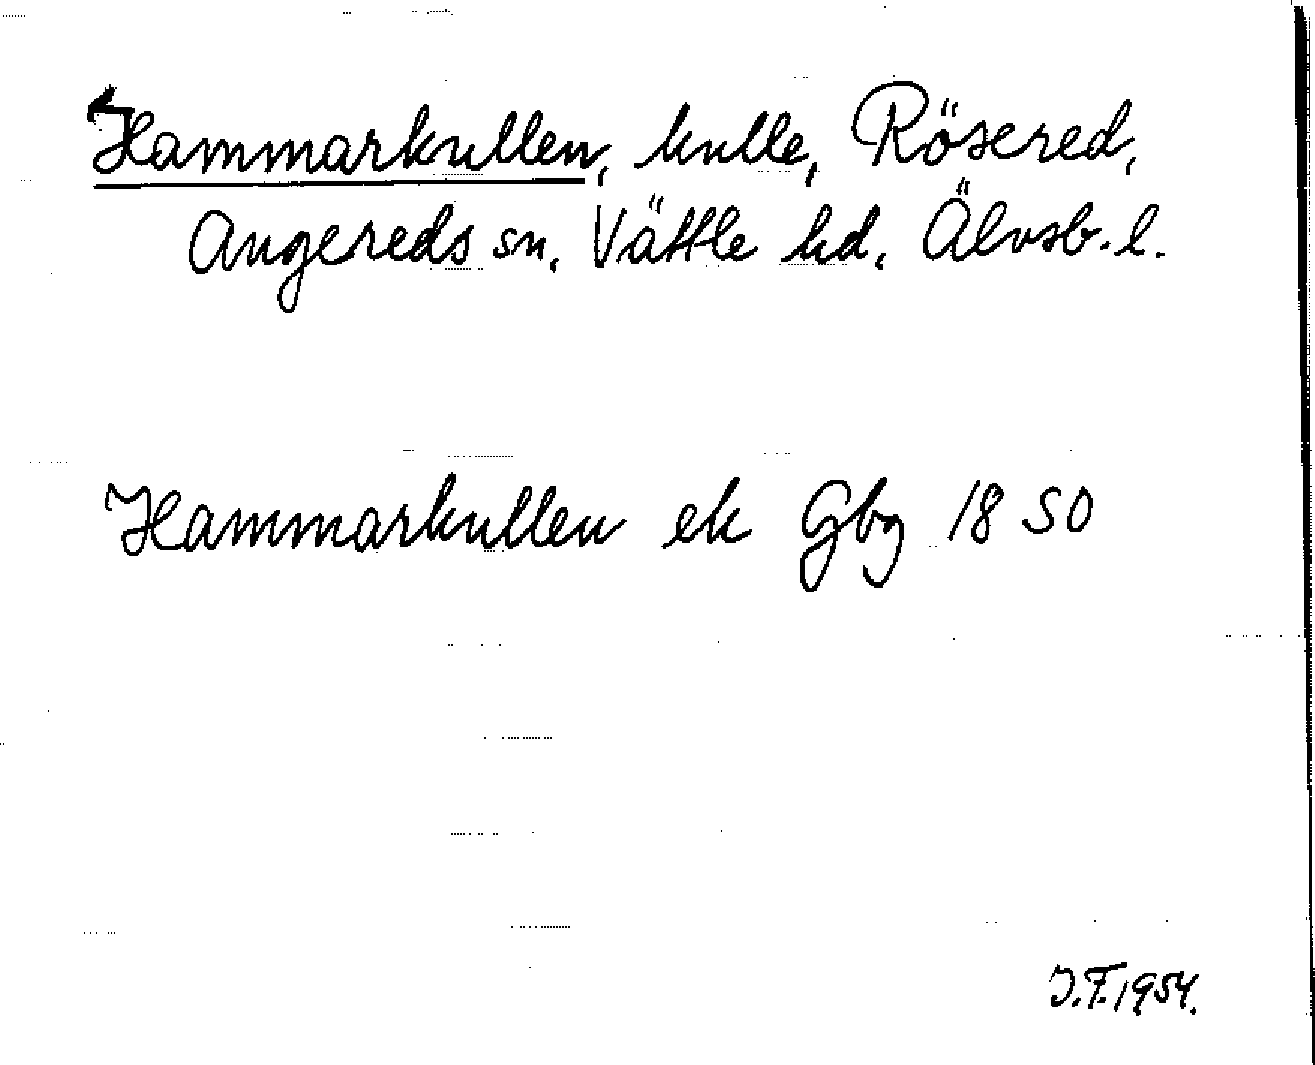 Hammarkullen, kulle, Rösered,
Angereds sn, Vättle hd, Älvsb. l.
Hammarkullen ek Gbg 1850
J.F. 1954.